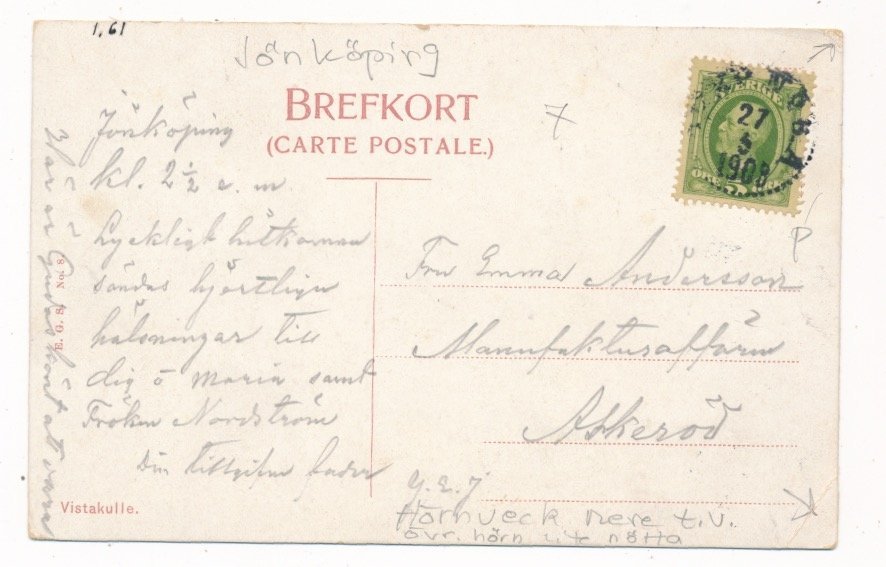 1,61
Jönköping
BREFKORT
(CARTE POSTALE.)
7
SVERIGE
27
5
1908
Jönköping
kl. 2 ½ e. m.
Lyckligt hitkommen
sändas hjertliga
hälsningar till
dig o Maria samt
Fröken Nordström
Din tillgifne fader
Här är Gudaskönt att vara
Fru Emma Andersson
Manufakturaffären
Askeröd
P
E. G. S. J. No. 8.
Vistakulle.
Hörnveck nere t.v.
övr. hörn lite nötta